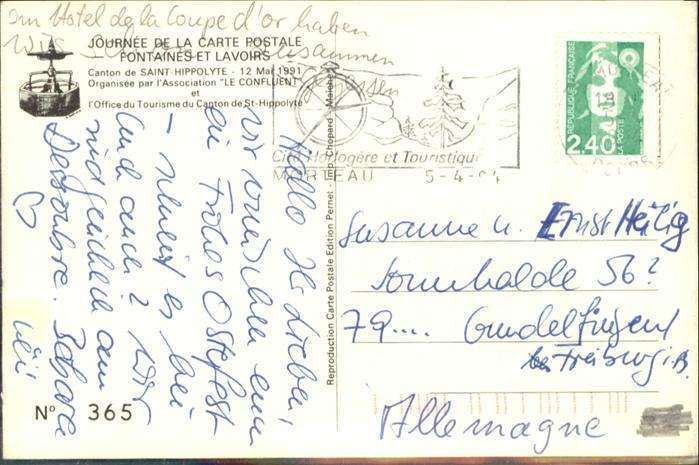 Im Hotel de la Coupe d'or haben
wir zusammen
gegessen
JOURNÉE DE LA CARTE POSTALE
FONTAINES ET LAVOIRS
Canton de SAINT-HIPPOLYTE - 12 Mai 1991
Organisée par l'Association "LE CONFLUENT"
et
l'Office du Tourisme du Canton de St-Hippolyte
Hallo Ihr Lieben,
wir wünschen euch
ein Frohes Osterfest
- schneit es bei
euch auch? Wir
sind am
Dessoubre.
N° 365
Reproduction Carte Postale Edition Pernet - Imp. Chopard - Maiche
Cité Horlogère et Touristique
MORTEAU 5-4-94
RÉPUBLIQUE FRANÇAISE
2,40
LA POSTE
Susanne u. Ernst Heilig
Sonnhalde 56?
79.... Gundelfingen
bei Freiburg i.B.
Allemagne